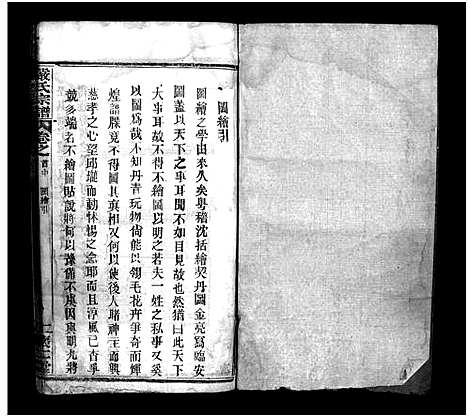 圖繪引
圖繪之學由來久矣粤稽沈括繪契丹圖金亮寫臨安
圖蓋以天下之事耳聞不如目見故也然猶曰此天下
大事耳故不得不繪圖以明之若夫一姓之私事又奚
以圖爲哉不知丹青玩物尙能以翎毛花卉爭奇而輝
煌譜牒竟不得圖其與相又何以使後人睹神主而興
慈孝之心望邱壠而動怵惕之念耶而且淳風已杳爭
競多端若不繪圖貼說將何以
嚴氏宗譜
卷之首中
圖繪引